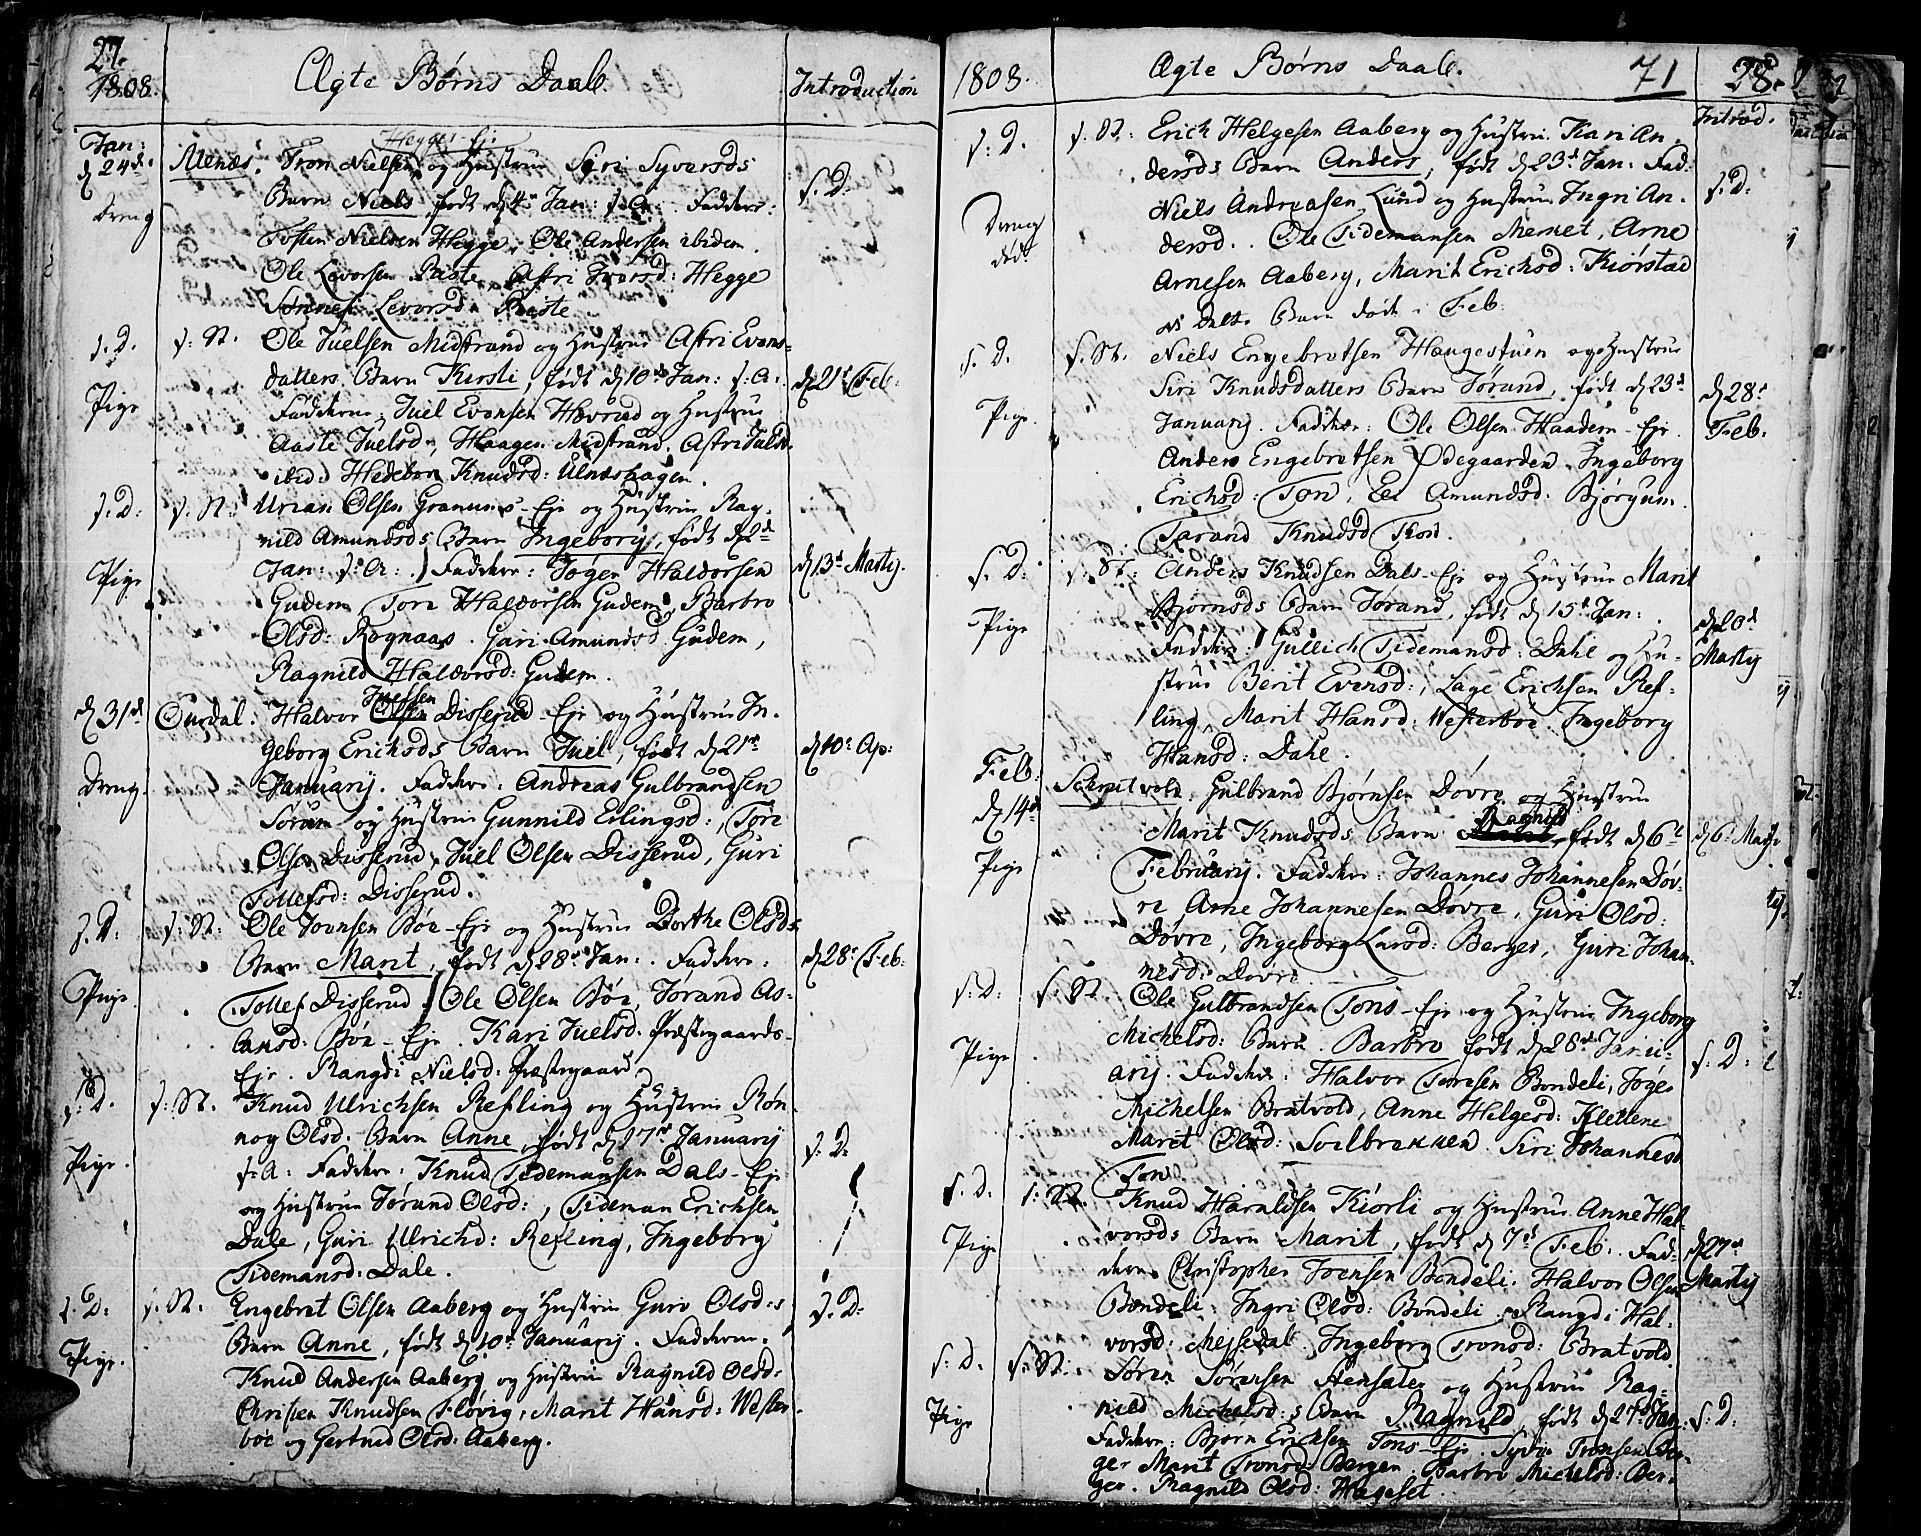 27.
1808.
Ægte Børns Daab.
Introduction
Jan:
d 24de
Ulnæs.
Hegge-Eje
Tron Nielsen og Hustrue Siri Syversds
Dreng
Barn Niels, født d 4 Jan: s: A. Faddere:
s. D.
Tosten Nielsen Hegge, Ole Andersen ibidem.
Ole Levorsen Riste, Astri Ivarsd: Hegge
Levorsd: Riste
s. D.
s. St.
Ole Juelsen Midstrand og Hustrue Astri Evens-
Pige
datters Barn Kersti, født d 10de Jan: s: A:
d 21 Feb:
Faddere, Juel Evensen Hovrud og Hustrue
Aaste Juelsd., Haagen Midstrand. Astri Juelsd
ibid: Hedebor Knudsd: Ulnæshagen.
s. D:
s. St:
Urian Olsen Granums-Eje og Hustrue Rag-
nild Amundsds Barn Ingeborg, født d 2d
Pige
Jan: s: A: Faddere: Jøgen Haldorsen
d 13d Martij.
Gudem, Tore Haldorsen Gudem, Barbro
Olsd: Rognaas. Gari Amundsd Gudem,
Ragnild Haldorsd: Gudem.
d 31d
Ourdal.
Juelsen
Halvor Olsen Disserud-Eje og Hustrue In-
geborg Erichsds Barn Juel, født d 21d
d 10: Ap:
Dreng.
Januarij. Faddere: Andreas Gulbrandsen
Sørum og Hustrue Gunnild Erlingsd:, Tore
Olsen Disserud, Juel Olsen Disserud, Guri
Tollefsd: Disserud.
s. D:
s: St:
Ole Joensen Bøe-Eje og Hustrue Dorthe Olsds
Pige
Barn Marit, født d 28 Jan: Faddere:
d 28: Feb:
Tollef Disserud, Ole Olsen Bøe, Jorand As-
lansd: Bøe-Eje. Kari Juelsd. Præstegaards-
Eje. Rangdi Nielsd: Præstegaard
s: D.
s: St.
Knud Ulrichsen Refling og Hustrue Røn-
nog Olsd: Barn Anne, født d 17d Januarij
s. D:
Pige.
s: A: Faddere: Knud Tidemansen Dals-Eje
og Hustrue Jørand Olsd:, Tideman Erichsen
Dale, Guri Ulrichd: Refling, Ingeborg
Tidemansd: Dale.
s. D:
s. St:
Engebret Olsen Aaberg og Hustrue Guro Olsd:s
s. D:
Pige.
Barn Anne, født d 10d Januarij. Faddere:
Knud Andersen Aaberg og Hustrue Ragnild Olsd:
Christen Knudsen Fløvig, Marit Hansd: Wester-
bøe og Gertrud Olsd: Aaberg.
1808.
Ægte Børns Daab.
71
28.
Introd.
s: D.
s. St:
Erich Helgesen Aaberg og Hustrue Kari An-
dersds Barn Anders, født d 23d Jan: Fad:
Dreng
død
Niels Andreasen Lund og Hustrue Ingri An-
s. D:
dersd. Ole Tidemansen Mernet, Arne
Arnesen Aaberg, Marit Erichsd: Kiørstad
Barn døde i Feb
s. D.
s. St.
Niels Engebretsen Haugestuen og Hustrue
Siri Knudsdatters Barn Jørand, født d 23d
d 28d
Feb.
Pige
Januarij. Faddere: Ole Olsen Haadem-Eje.
Anders Engebretsen Ødegaarden, Ingeborg
Erichsd: Ton, Amundsd: Bjørgum.
Tarand Knudsd Ton.
s. D:
s: St:
Anders Knudsen Dals-Eje og Hustrue Marit
Pige
Bjørnsds Barn Jørand, født d 15d Jan:
d 20d
Martij
Faddere: Gullich Tidemansd: Dahl og Hu-
strue Berit Evensd:, Lage Erichsen Ref-
ling, Marit Hansd: Westerbøe. Ingeborg
Hansd: Dahl.
Feb:
d 14d
Schrutvold:
Gulbrand Bjørnsen Døvre og Hustrue
Ragnild
Marit Knudsds Barn født d 6d
d 6: Maij
Pige
Februarij. Faddere: Johannes Johannesen Døv-
re, Arne Johannesen Døvre, Guri Olsd:
Døvre, Ingeborg Larsd: Berger, Guri Johan-
nesd: Døvre
s: D:
s. St.
Ole Gulbrandsen Tons-Eje og Hustrue Ingeborg
Pige
Michelsd: Barn Barbro født d 28d Janu-
s. D:
arij. Faddere: Halvor Toresen Bondeli, Jøger
Michelsen Bratvold, Anne Helgesd: Klettene
Marit Olsd: Soelbrekken Siri Johannesd
Ton.
s. D.
s: St.
Knud Harnildsen Kiørli og Hustrue Anne Hal-
Pige
vorsds Barn Marit, født d 7d Feb: Fad-
d 27d
Martij
dere. Christopher Joensen Bondeli. Halvor Olsen
Bondeli: Ingri Olsd: Bondeli, Rangdi Hal-
vorsd: Mejsedal, Ingeborg Tronsd: Bratvold
s. D.
s. St:
Søren Sørensen Aensæter og Hustrue Rag-
Pige
nild Michelsd:s Barn Ragnild, født d 21d Jan:
s: D:
Faddere: Bjørn Erichsen Tons-Eje, Syver Tronsen Ber-
ger Marit Tronsd: Bergen Barbro Michelsd: Ber-
ger. Ragnild Olsd: Hageset.